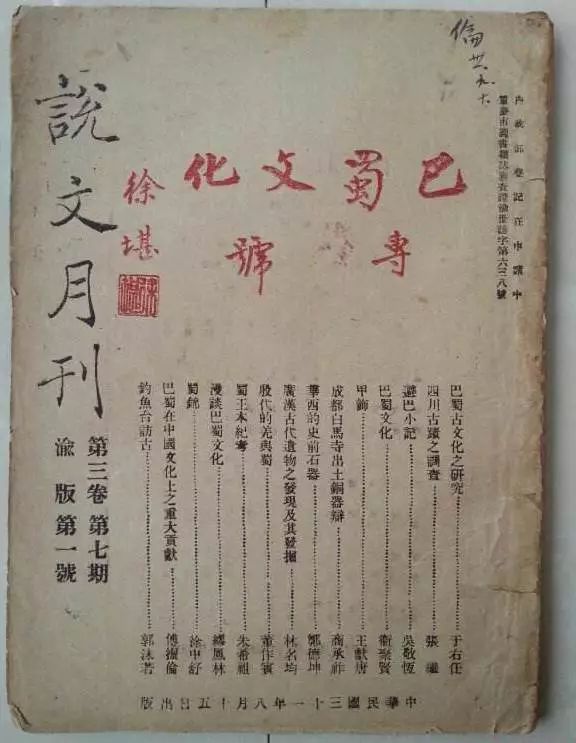 內政部登記在申請中
重慶市圖書雜誌審查證渝世誌字第六三八號
倫 卅一 九 十
巴蜀文化
專號
徐堪
說文月刊
第三卷第七期
渝版第一號
巴蜀古文化之研究……于右任
四川古蹟之調查……張繼
避巴小記……吳敬恆
巴蜀文化……衛聚賢
甲飾……王獻唐
成都白馬寺出土銅器辯……商承祚
華西的史前石器……鄭德坤
廣漢古代遺物之發現及其發掘……林名均
殷代的羌與蜀……董作賓
蜀王本紀考……朱希祖
漫談巴蜀文化……繆鳳林
蜀錦……徐中舒
巴蜀在中國文化上之重大貢獻……傅振倫
釣魚台訪古……郭沫若
中華民國三十一年八月十五日出版